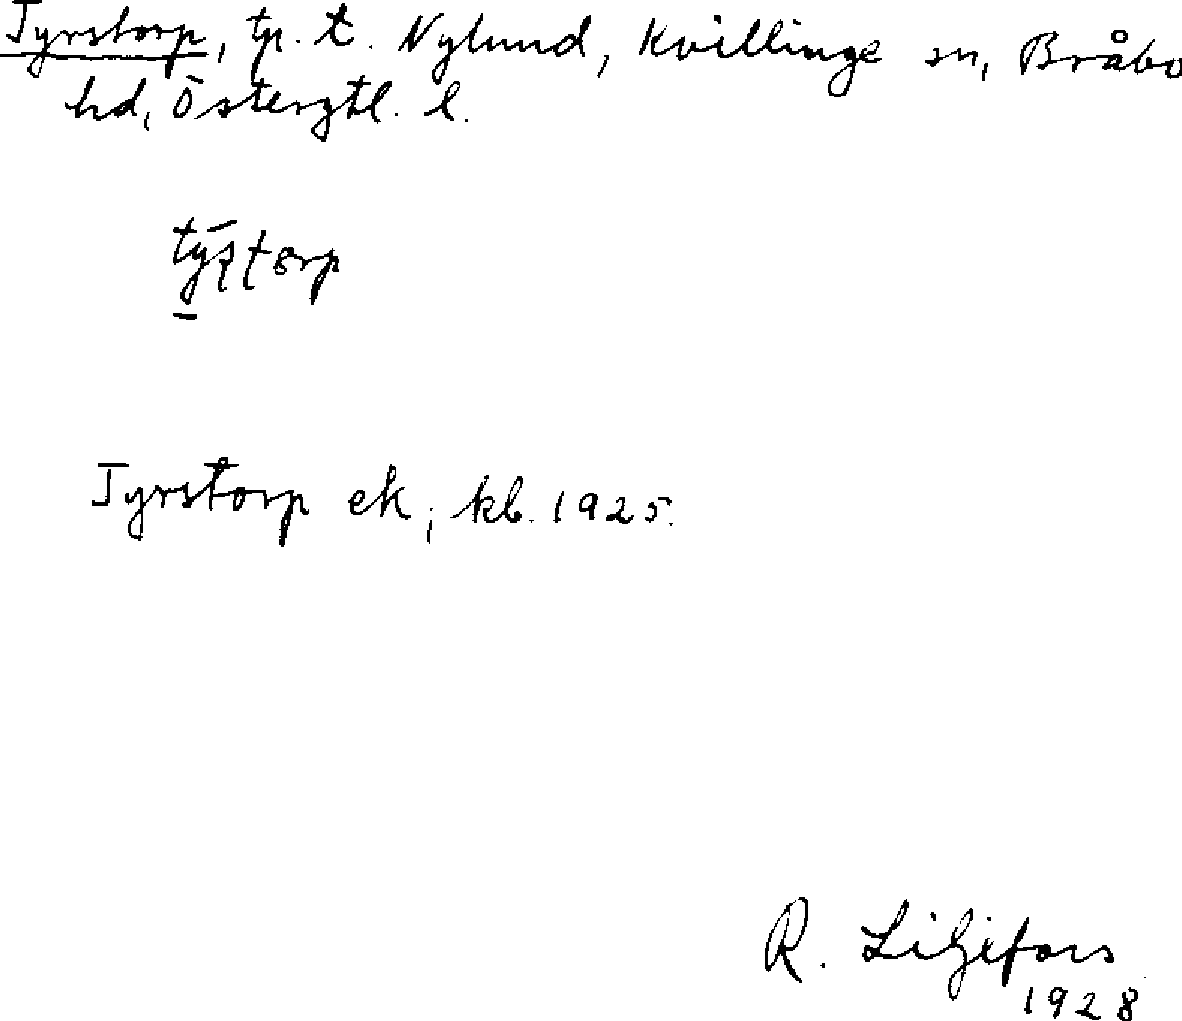 Tyrstorp, tp. t. Nylund, Kvillinge sn, Bråbo
hd, Östergtl. l.
Tyrstorp ek; kb. 1925.
R. Liljefors
1928